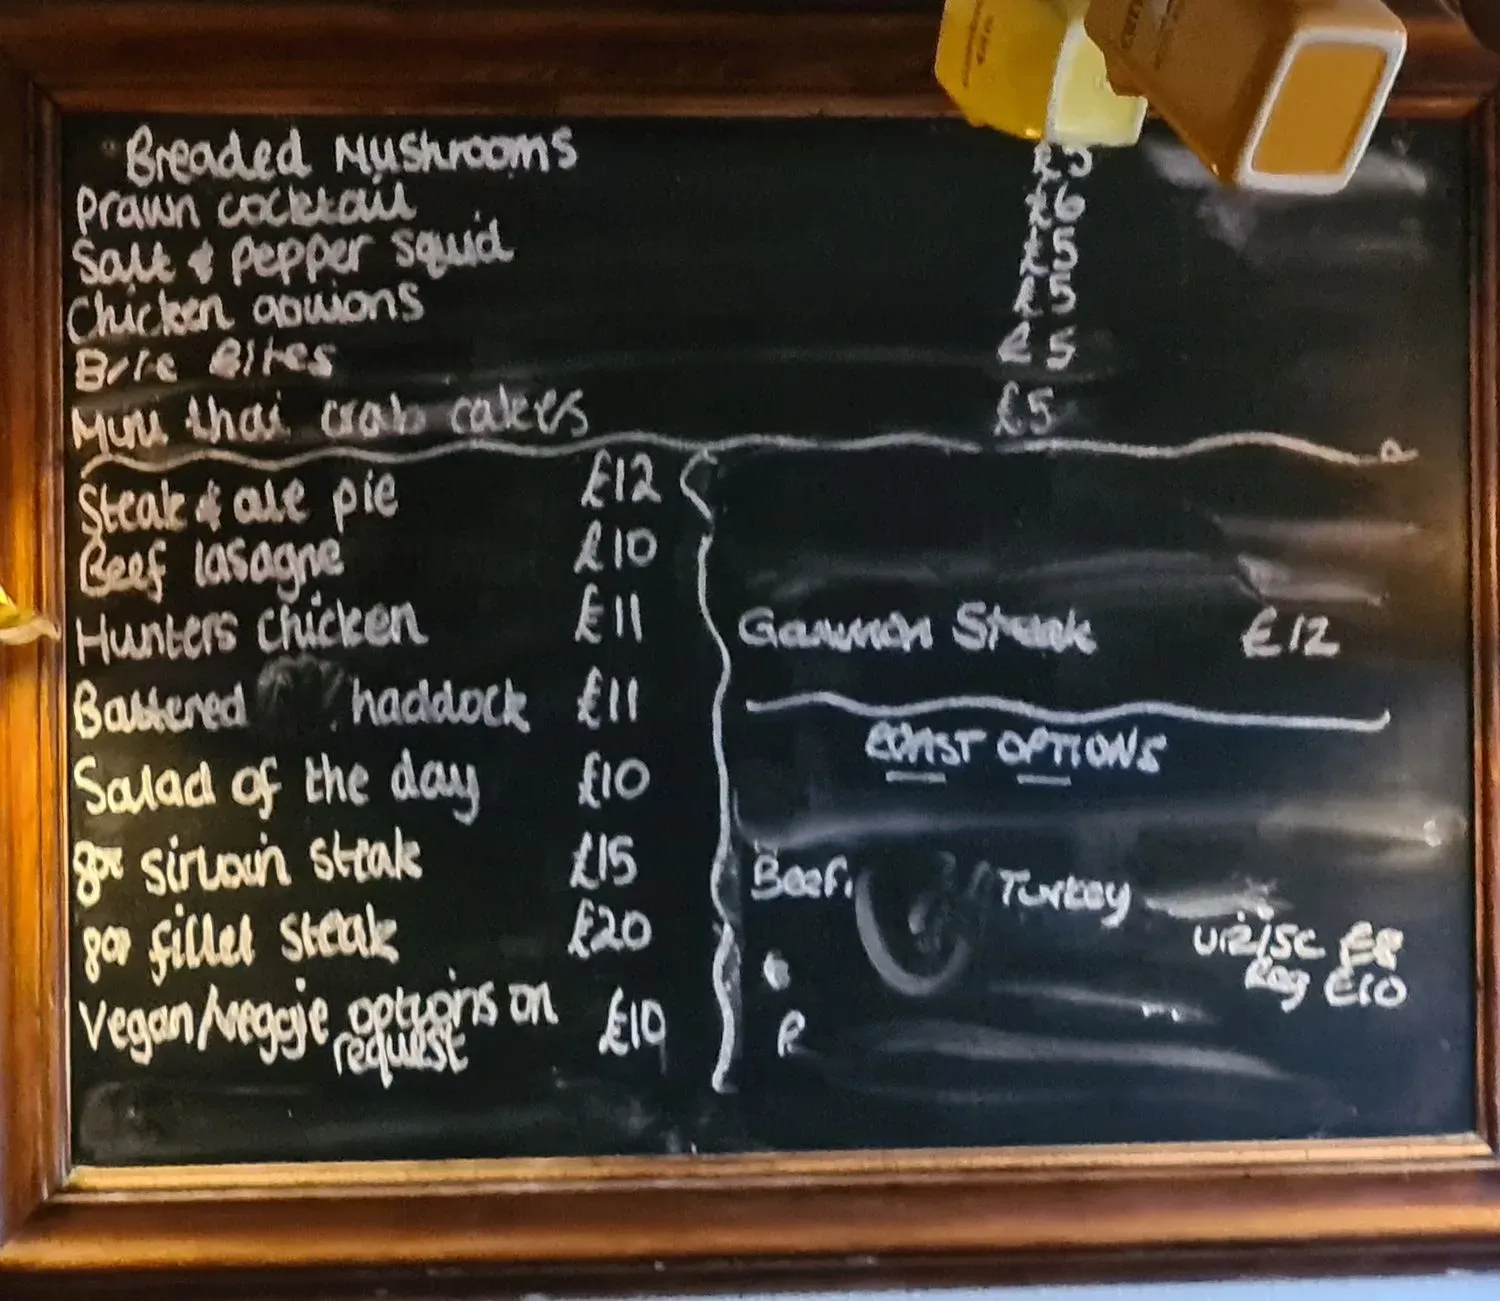 Breaded Mushrooms £5
Prawn cocktail £6
Salt & pepper squid £5
Chicken goujons £5
Brie Bites £5
Mini thai crab cakes £5
Steak & ale pie £12
Beef lasagne £10
Hunters chicken £11
Battered haddock £11
Salad of the day £10
8oz sirloin steak £15
8oz fillet steak £20
Vegan/veggie options on £10
request
Gammon Steak £12
ROAST OPTIONS
Beef, Turkey
£8
Reg £10